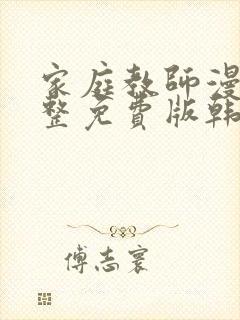 家庭教師漫
整免費版韩
傅志寰